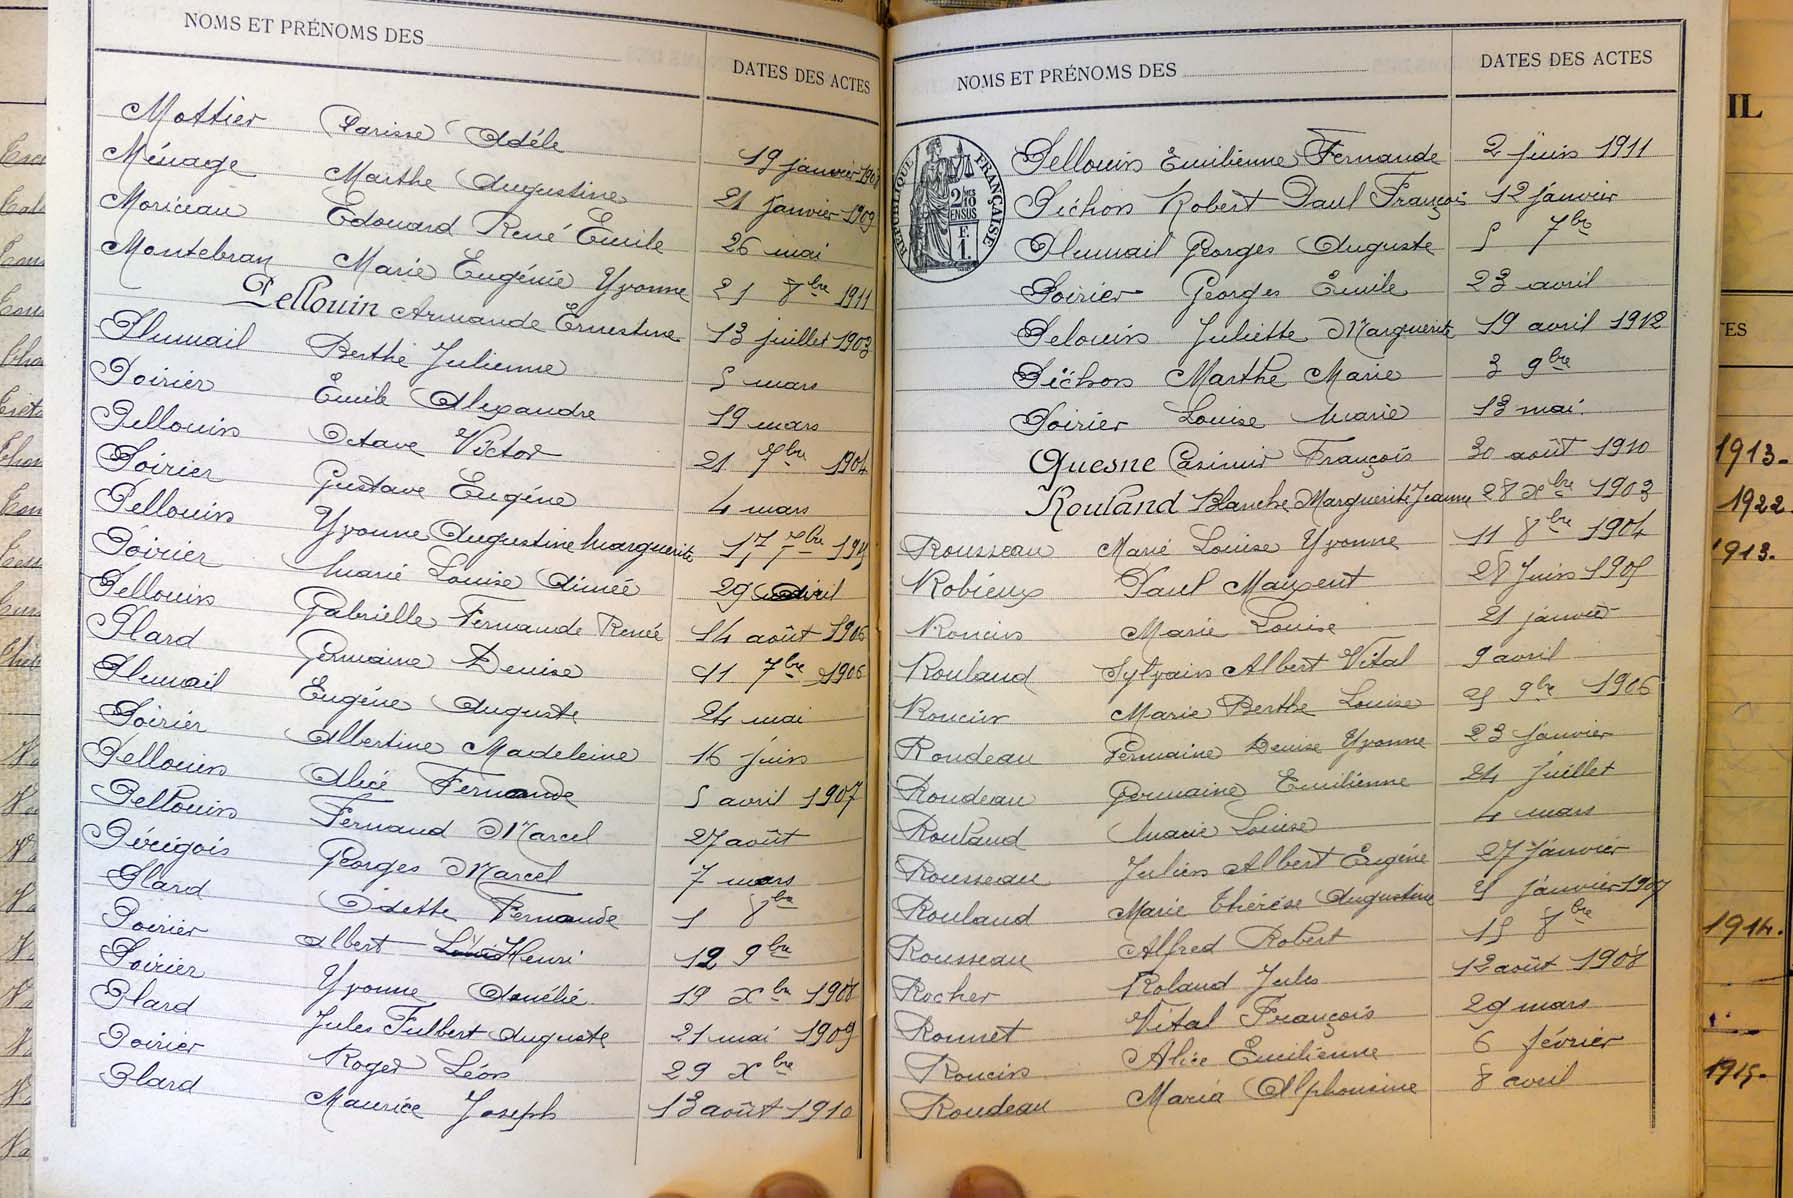 NOMS ET PRÉNOMS DES
DATES DES ACTES
Mottier Clarisse Adéle 19 janvier 1908
Ménage Marthe Augustine 21 janvier 1909
Moriceau Edouard René Emile 26 mai
Montebran Marie Eugénie Yvonne 21 8bre 1911
Pellouin Armande Ernestine 13 juillet 1903
Plumail Berthe Julienne 5 mars
Poirier Emile Alexandre 19 mars
Pellouin Octave Victor 21 7bre 1904
Poirier Gustave Eugéne 4 mars
Pellouin Yvonne Augustine Marguerite 17 7bre
Poirier Marie Louise Aimée 29 avril
Pellouin Gabrielle Fernande Renée 14 août 1906
Plard Germaine Denise 11 7bre 1906
Plumail Eugéne Auguste 24 mai
Poirier Albertine Madeleine 16 juin
Pellouin Alice Fernande 5 avril 1907
Pellouin Fernand Marcel 27 août
Périgois Georges Marcel 7 mars
Plard Odette Fernande 5 8bre
Poirier Albert Louis Henri 12 9bre
Poirier Yvonne Amélie 19 xbre 1908
Plard Jules Fulbert Auguste 21 mai 1909
Poirier Roger Léon 29 xbre
Plard Maurice Joseph 13 août 1910
NOMS ET PRÉNOMS DES
DATES DES ACTES
RÉPUBLIQUE FRANÇAISE
2/10
EN SUS
F.
1.
Pellouin Emilienne Fernande 2 juin 1911
Pichon Robert Paul François 12 janvier
Plumail Georges Auguste 5 7bre
Poirier Georges Emile 23 avril
Pelouin Juliette Marguerite 19 avril 1912
Pichon Marthe Marie 3 9bre
Poirier Louise Marie 13 mai.
Quesne Casimir François 30 août 1910
Rouland Blanche Marguerite Jeanne 28 xbre 1903
Rousseau Marie Louise Yvonne 11 8bre 1904
Robieux Paul Maixent 28 Juin 1905
Roncin Marie Louise 21 janvier
Rouland Sylvain Albert Vital 9 avril
Roncin Marie Berthe Louise 25 9bre 1906
Rondeau Germaine Denise Yvonne 23 janvier
Rondeau Germaine Emilienne 24 juillet
Rouland Marie Louise 4 mars
Rousseau Julien Albert Eugéne 27 janvier
Rouland Marie Thérèse Augustine janvier 1907
Rousseau Alfred Robert 15 8bre
Rocher Roland Jules 12 août 1908
Ronnet Vital François 29 mars
Roncin Alice Emilienne 6 février
Rondeau Maria Alphonsine 8 avril
IL
TES
1913.
1922
1913.
1914.
1915.